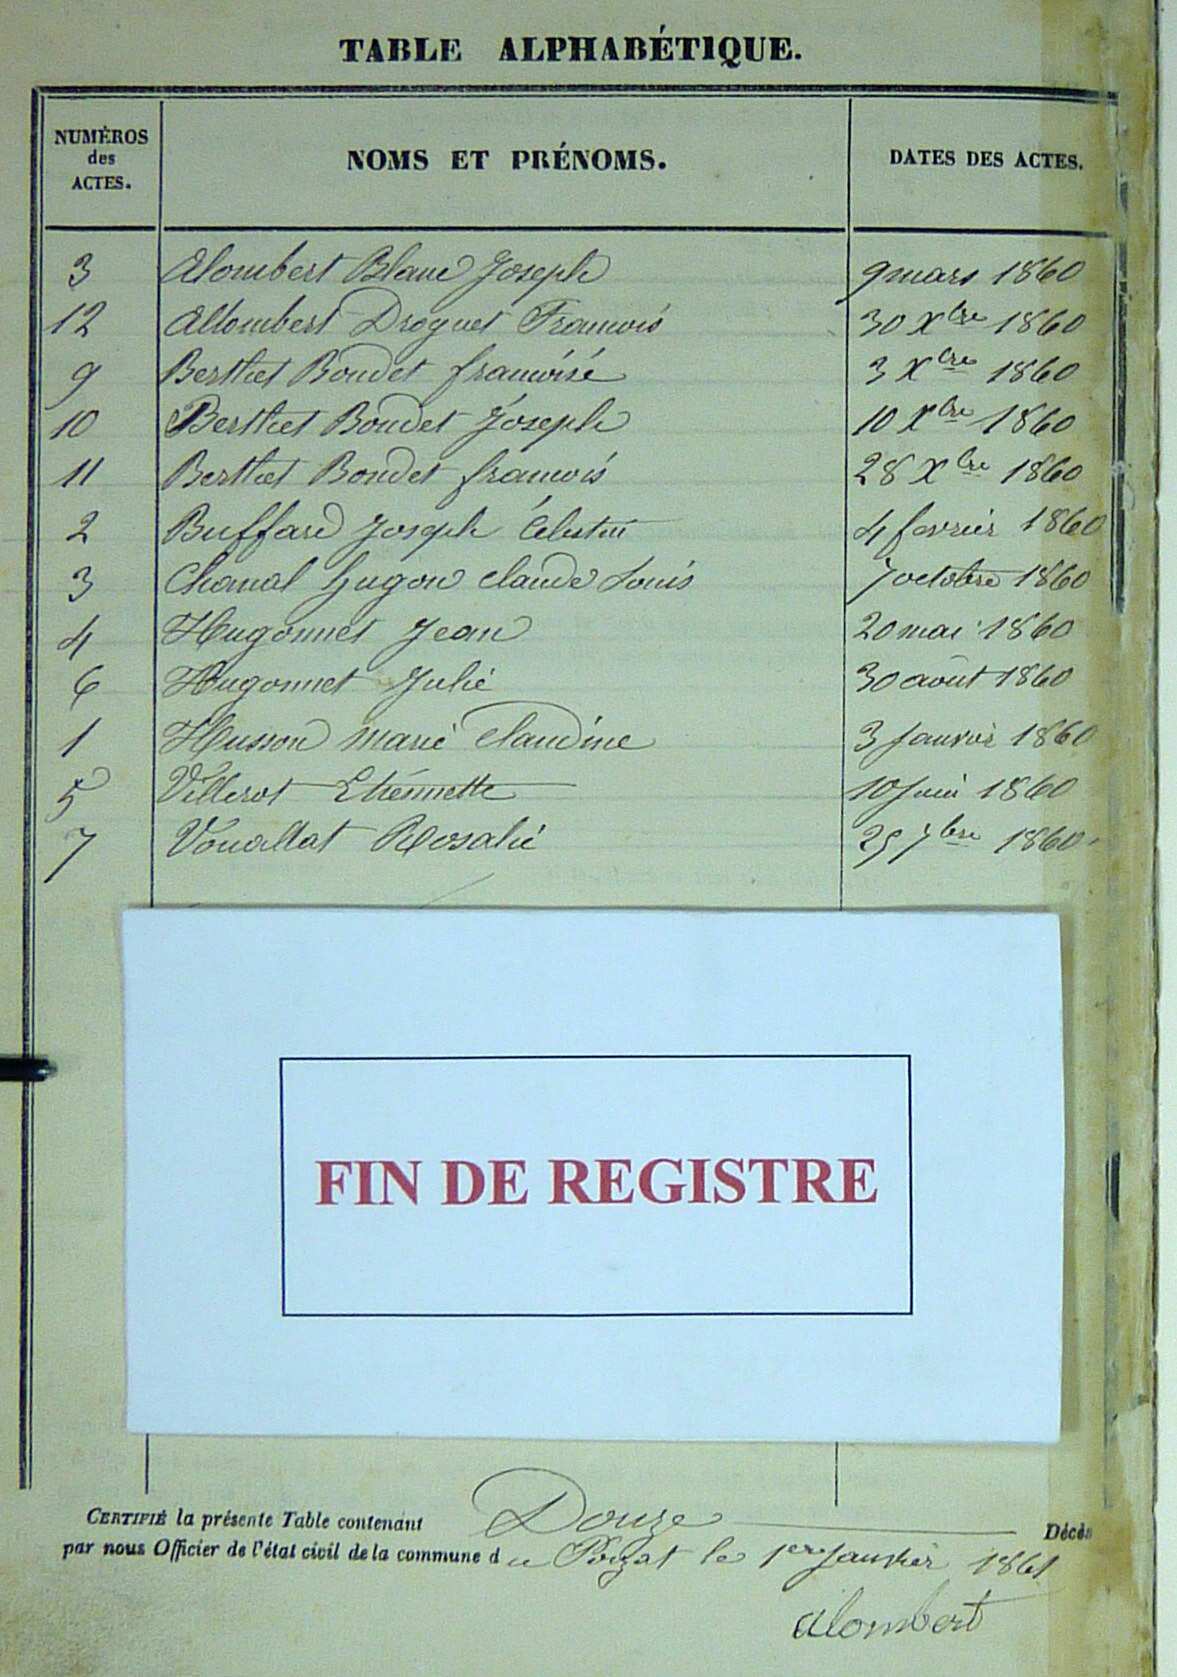 TABLE ALPHABÉTIQUE.
NUMÉROS des ACTES. NOMS ET PRÉNOMS. DATES DES ACTES.
3 Alombert Blanc Joseph 9 mars 1860
12 Allombert Droguet François 30 Xbre 1860
9 Berthet Bondet françoise 3 Xbre 1860
10 Berthet Bondet Joseph 10 Xbre 1860
11 Berthet Bondet francois 28 Xbre 1860
2 Buffard Joseph Célestin 4 fevrier 1860
3 Chanal Hugon Claude Louis 7 octobre 1860
4 Hugonnet Jean 20 mai 1860
6 Hugonnet Julie 30 août 1860
1 Husson Marie Claudine 3 Janvier 1860
5 Villerot Etiennette 10 Juin 1860
7 Vouallat Rosalie 25 7bre 1860
FIN DE REGISTRE
CERTIFIÉ la présente Table contenant Douze Décès
par nous Officier de l'état civil de la commune du Poizat le 1er Janvier 1861
Alombert